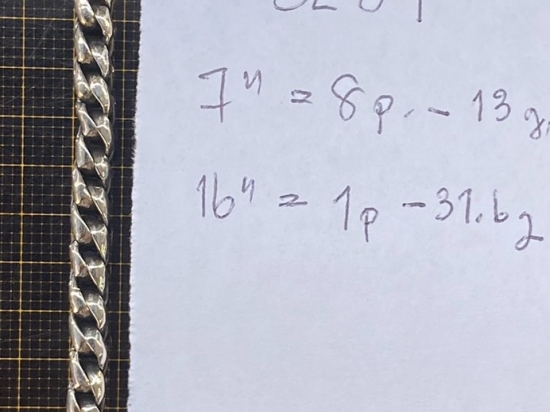 7" = 8p. - 13g.
16" = 1p - 31.6g